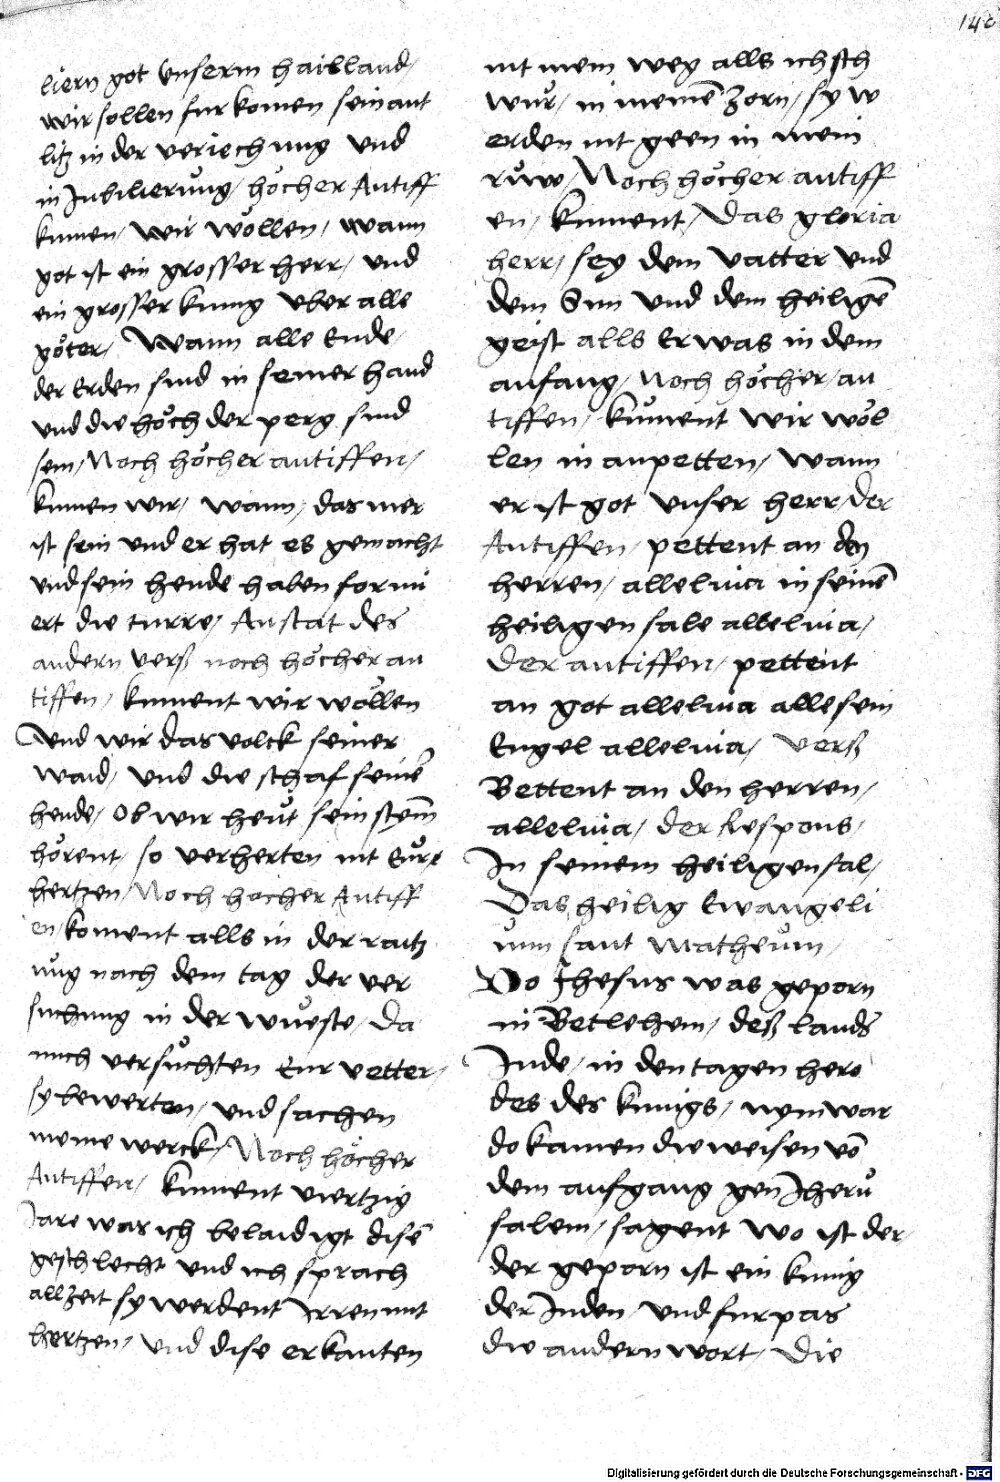 140
liern got unserm hailland/
wir sollen furkomen sein ant
litz in der veriechung und
in Jubilierung/ höcher Antiff
kumen/ wir wöllen/ wann
got ist ein grosser herr/ und
ein grosser kunig uber alle
göter/ Wann alle Ende
der Erden sind in seiner hand
und die höch der perg sind
sein/ Noch höcher antiffen/
kumen wir/ wann/ das mer
ist sein und er hat es gemacht
und sein hende haben formi
ert die turre/ Anstat des
andern verß noch höcher an
tiffen/ kument wir wöllen
und wir das volck seiner
waid/ und die schaf seinē
hende/ Ob wir heut sein stym̄
hörent/ so verherten nit Eure
hertzen/ Noch höcher Antiff
en/ koment alls in der raitz
ung nach dem tag der ver
suchung in der wueste/ Da
mich versuchten Eur vetter/
sy bewerten/ und sachen
meine werck/ Noch höcher
Antiffen/ kument viertzig
Jare was ich belaidigt disē
geschlecht und ich sprach
allzeit sy werdent Irren mit
hertzen/ und dise erkanten
nit mein weg alls ich sch
wur/ in meinē zorn/ sy w
erden nit geen in mein
ruw/ Noch höcher antiff
en/ kument/ Das gloria
herr/ sey dem vatter und
dem Sun und dem heiligē
geist alls Er was in dem
anfang/ Noch höcher/ an
tiffen/ kument wir wöl
len in anpetten/ wann
er ist got unser herr/ der
Antiffen/ pettent an den
herren/ alleluia in seinē
heiligen sale alleluia/
Der antiffen/ pettent
an got alleluia alle sein
Engel alleluia/ verß
Bettent an den herren/
alleluia/ der Respons/
In seinem heiligen sal/
Das heilig Ewangeli
um sant Matheum/
Do Jhesus was geporn
in Betlehem/ deß lands
Jude/ in den tagen hero
des des kunigs/ nym war
do kamen die weisen vō
dem aufgang gen Jheru
salem/ sagent wo ist der/
der geporn ist ein kunig
der Juden und furpas
die andern wort/ Die
Digitalisierung gefördert durch die Deutsche Forschungsgemeinschaft - DFG